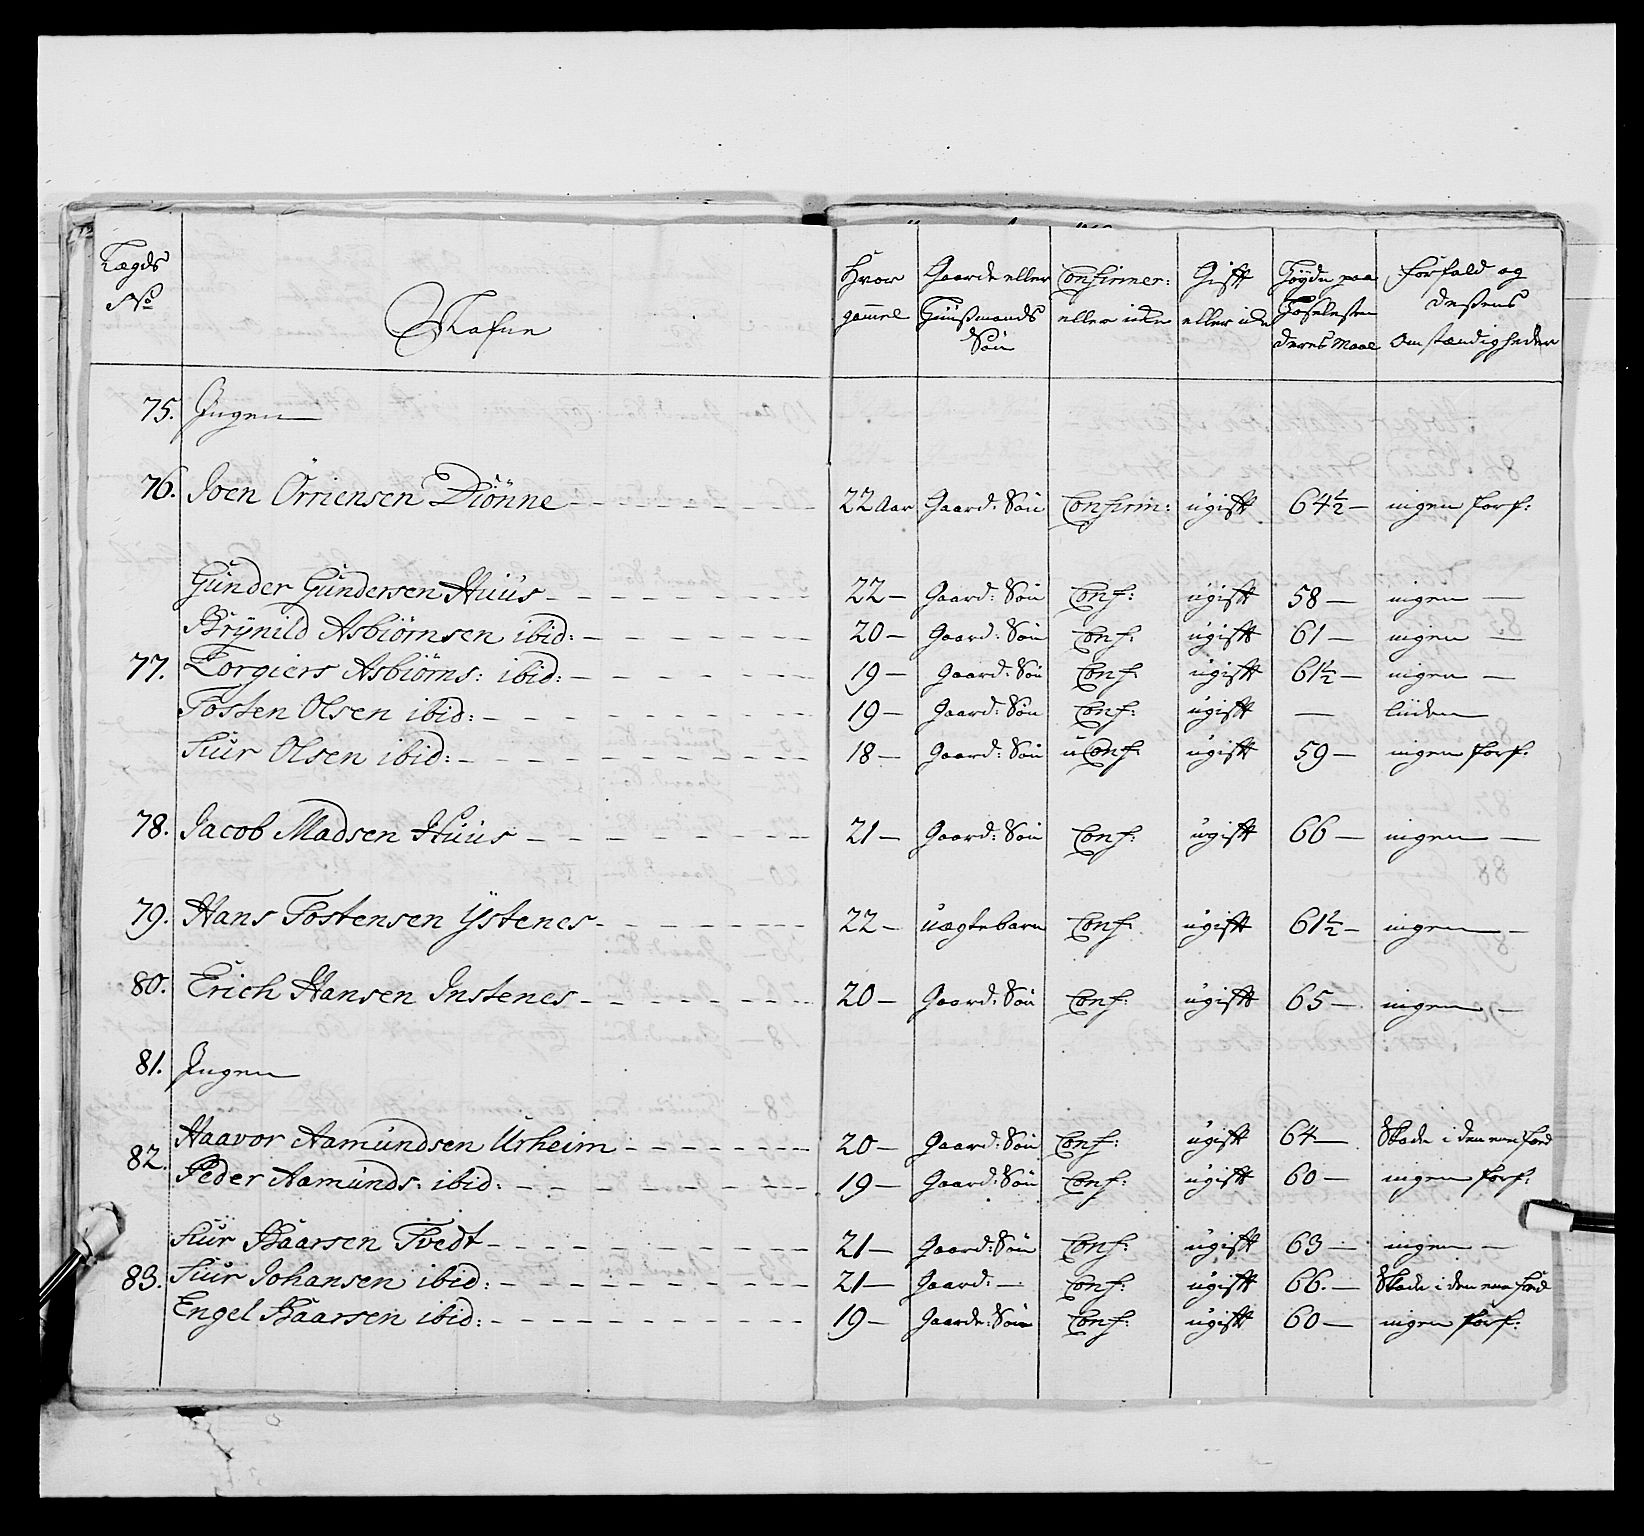 Lægds No | Nafne | Hvor gammel | Gaarde eller Huusmands Søn | Confirmer: eller icke | Gift eller icke | Høyde paa Hoselesten deres Maal | forfald og deßens Omstændigheder
75. Ingen
76. Joen Örriensen Diönne | 22 Aar | Gaard: Søn | Confirm: | ugift | 64½ | ingen forf:
Gunder Gundersen Huus | 22 | Gaard: Søn | Conf: | ugift | 58 | ingen
Brynild Asbiörnsen ibid: | 20 | Gaard: Søn | Conf: | ugift | 61 | ingen
77. Torgiers Asbiörns: ibid: | 19 | Gaard: Søn | Conf: | ugift | 61½ | ingen
Tosten Olsen ibid: | 19 | Gaard: Søn | Conf: | ugift | — | liiden
Siur Olsen ibid: | 18 | Gaard: Søn | uConf: | ugift | 59 | ingen forf:
78. Jacob Madsen Huus | 21 | Gaard: Søn | Conf: | ugift | 66 | ingen
79. Hans Tostensen Ystenes | 22 | uægtebarn | Conf: | ugift | 61½ | ingen
80. Erich Hansen Instenes | 20 | Gaard: Søn | Conf: | ugift | 65 | ingen
81. Ingen
Haavor Aamundsen Urheim | 20 | Gaard: Søn | Conf: | ugift | 64 | Skade i den ene fod
82. Peder Aamunds: ibid: | 19 | Gaard: Søn | Conf: | ugift | 60 | ingen forf:
Siur Baarsen Tvedt | 21 | Gaard: Søn | Conf: | ugift | 63 | ingen
83. Siur Johansen ibid: | 21 | Gaard: — | Conf: | ugift | 66. | Skade i den ene fod
Engel Baarsen ibid: | 19 | Gaarde: Søn | Conf: | ugift | 60 | ingen forf: